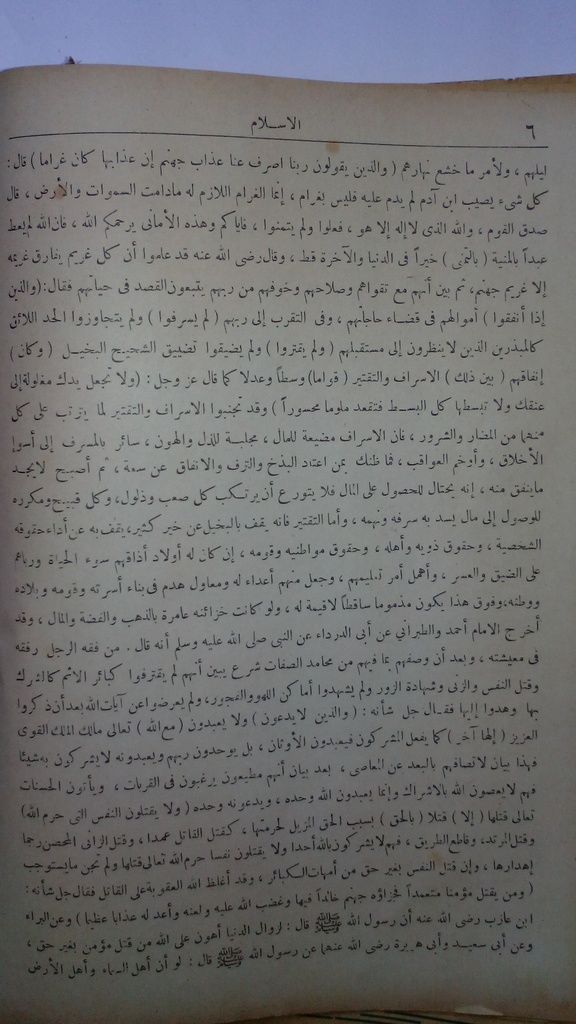 ٦
الاسلام
ليلهم ، ولأمر ما خشع نهارهم ( والذين يقولون ربنا اصرف عنا عذاب جهنم إن عذابها كان غراما ) قال :
كل شىء يصيب ابن آدم لم يدم عليه فليس بغرام ، إنما الغرام اللازم له مادامت السموات والأرض ، قال
صدق القوم ، والله الذى لا إله إلا هو ، فعلوا ولم يتمنوا ، فاياكم وهذه الأمانى يرحمكم الله ، فان الله لم يعط
عبداً بالمنية ( بالتمنى ) خيراً فى الدنيا والآخرة قط ، وقال رضى الله عنه قد علموا أن كل غريم يفارق غريمه
إلا غريم جهنم، ثم بين أنهم مع تقواهم وصلاحهم وخوفهم من ربهم يتبعون القصد فى حياتهم فقال: (والذين
إذا أنفقوا ) أموالهم فى قضاء حاجاتهم ، وفى التقرب إلى ربهم ( لم يسرفوا ) ولم يتجاوزوا الحد اللائق
كالمبذرين الذين لا ينظرون إلى مستقبلهم ( ولم يقتروا ) ولم يضيقوا تضييق الشحيح البخيل ( وكان )
إنفاقهم ( بين ذلك ) الاسراف والتقتير ( قواما) وسطاً وعدلا كما قال عز وجل : (ولا تجعل يدك مغلولة إلى
عنقك ولا تبسطها كل البسط فتقعد ملوما محسوراً ) وقد تجنبوا الاسراف والتقتير لما يترتب على كل
منهما من المضار والشرور ، فان الاسراف مضيعة للمال ، مجلبة للذل والهون ، سائر بالمسرف إلى أسوإ
الأخلاق ، وأوخم العواقب ، فما ظنك بمن اعتاد البذخ والترف والانفاق عن سعة ، ثم أصبح لا يجد
ما ينفق منه ، إنه يحتال للحصول على المال فلا يتورع أن يرتكب كل صعب وذلول، وكل قبيح ومكروه
للوصول إلى مال يسد به سرفه ونهمه ، وأما التقتير فانه يقف بالبخيل عن خير كثير، يقف به عن أداء حقوقه
الشخصية ، وحقوق ذويه وأهله ، وحقوق مواطنيه وقومه ، إن كان له أولاد أذاقهم سوء الحياة ورباهم
على الضيق والعسر ، وأهمل أمر تعليمهم ، وجعل منهم أعداء له ومعاول هدم فى بناء أسرته وقومه وبلاده
ووطنه، وفوق هذا يكون مذموما ساقطاً لاقيمة له ، ولو كانت خزائنه عامرة بالذهب والفضة والمال ، وقد
أخرج الامام أحمد والطبرانى عن أبى الدرداء عن النبى صلى الله عليه وسلم أنه قال . من فقه الرجل رفقه
فى معيشته ، وبعد أن وصفهم بما فيهم من محامد الصفات شرع يبين أنهم لم يقترفوا كبائر الاثم كالشرك
وقتل النفس والزنى وشهادة الزور ولم يشهدوا أماكن اللهو والفجور، ولم يعرضوا عن آيات الله بعد أن ذكروا
بها وهدوا إليها فقال جل شأنه : ( والذين لا يدعون ) ولا يعبدون ( مع الله ) تعالى مالك الملك القوى
العزيز ( إلها آخر ) كما يفعل المشركون فيعبدون الأوثان ، بل يوحدون ربهم ويعبدونه لا يشركون به شيئا
فهذا بيان لاتصافهم بالبعد عن المعاصى ، بعد بيان أنهم مطيعون يرغبون فى القربات ، ويأتون الحسنات
فهم لا يعصون الله بالاشراك وإنما يعبدون الله وحده ، ويدعونه وحده ( ولا يقتلون النفس التى حرم الله)
تعالى قتلها ( إلا ) قتلا ( بالحق ) بسبب الحق المزيل لحرمتها ، كقتل القاتل عمدا ، وقتل الزانى المحصن رجما
وقتل المرتد، وقاطع الطريق ، فهم لا يشركون بالله أحدا ولا يقتلون نفسا حرم الله تعالى قتلها ولم تجن ما يستوجب
إهدارها ، وإن قتل النفس بغير حق من أمهات الكبائر ، وقد أغلظ الله العقوبة على القاتل فقال جل شأنه :
( ومن يقتل مؤمنا متعمداً فجزاؤه جهنم خالداً فيها وغضب الله عليه ولعنه وأعد له عذابا عظيما ) وعن البراء
ابن عازب رضى الله عنه أن رسول الله ﷺ قال : لزوال الدنيا أهون على الله من قتل مؤمن بغير حق ،
وعن أبى سعيد وأبى هريرة رضى الله عنهما عن رسول الله ﷺ قال : لو أن أهل السماء وأهل الأرض